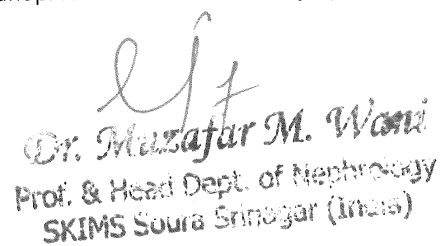 Dr. Muzafar M. Wani
Prof. & Head Dept. of Nephrology
SKIMS Soura Srinagar (India)